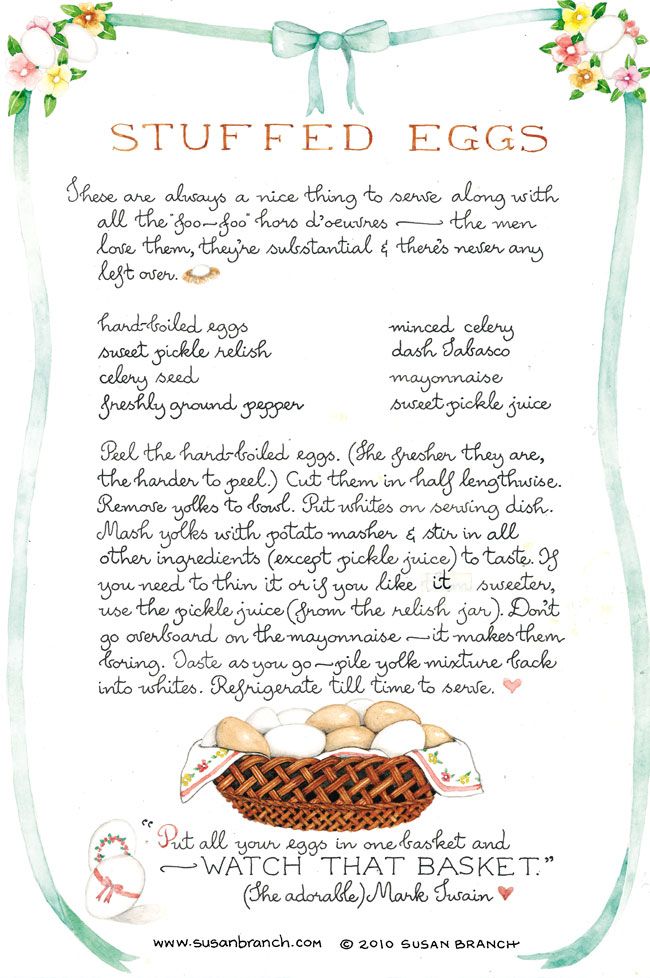 STUFFED EGGS
These are always a nice thing to serve along with
all the "foo-foo" hors d'oeuvres — the men
love them, they're substantial & there's never any
left over.
hard-boiled eggs
sweet pickle relish
celery seed
freshly ground pepper
minced celery
dash Tabasco
mayonnaise
sweet pickle juice
Peel the hard-boiled eggs. (The fresher they are,
the harder to peel.) Cut them in half lengthwise.
Remove yolks to bowl. Put whites on serving dish.
Mash yolks with potato masher & stir in all
other ingredients (except pickle juice) to taste. If
you need to thin it or if you like it sweeter,
use the pickle juice (from the relish jar). Don't
go overboard on the mayonnaise — it makes them
boring. Taste as you go — pile yolk mixture back
into whites. Refrigerate till time to serve. ♥
"Put all your eggs in one basket and
— WATCH THAT BASKET."
(The adorable) Mark Twain ♥
www.susanbranch.com © 2010 SUSAN BRANCH